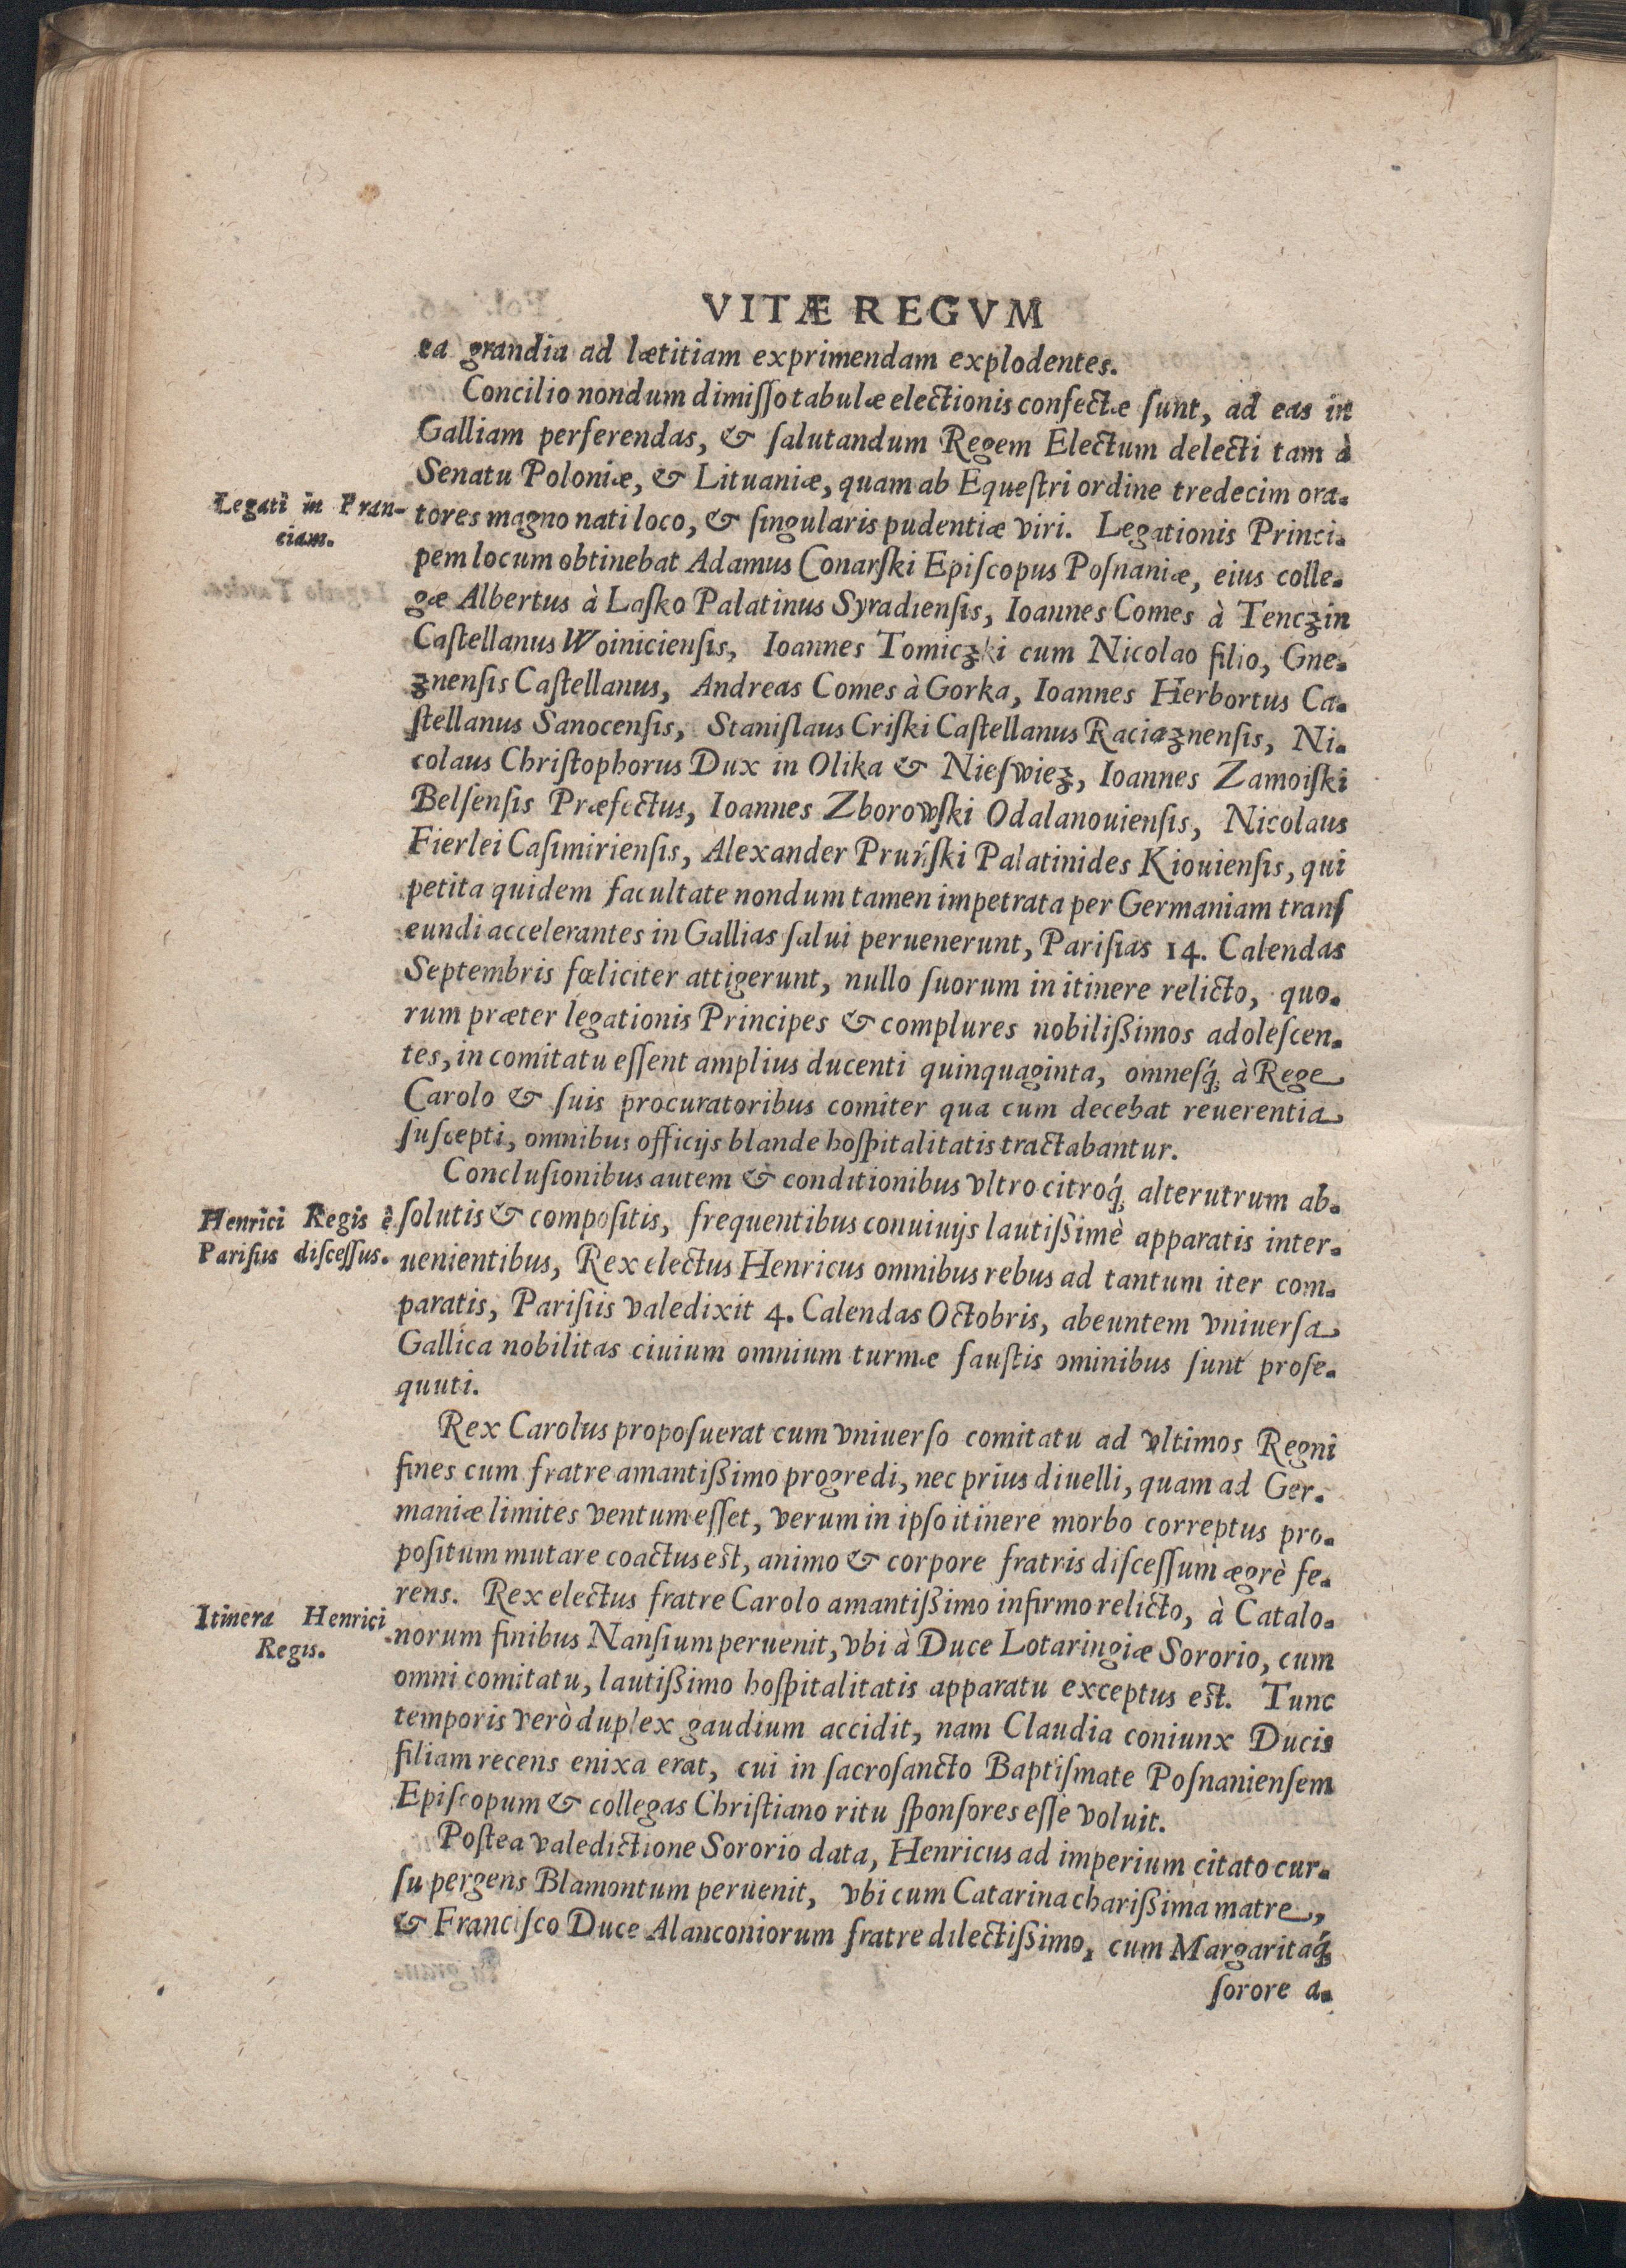 VITÆ REGVM
ea grandia ad lætitiam exprimendam explodentes.
Concilio nondum dimiſſo tabulæ electionis confectæ ſunt, ad eas in
Galliam perferendas, & ſalutandum Regem Electum delecti tam à
Senatu Poloniæ, & Lituaniæ, quam ab Equeſtri ordine tredecim ora-
Legati in Fran-
ciam.
tores magno nati loco, & ſingularis pudentiæ viri. Legationis Princi-
pem locum obtinebat Adamus Conarſki Epiſcopus Poſnaniæ, eius colle-
gæ Albertus à Laſko Palatinus Syradienſis, Ioannes Comes à Tenczin
Caſtellanus Woinicienſis, Ioannes Tomiczki cum Nicolao filio, Gne-
znenſis Caſtellanus, Andreas Comes à Gorka, Ioannes Herbortus Ca-
ſtellanus Sanocenſis, Staniſlaus Criſki Caſtellanus Raciaznenſis, Ni-
colaus Chriſtophorus Dux in Olika & Nieſwiez, Ioannes Zamoiſki
Belſenſis Præfectus, Ioannes Zborowſki Odalanouienſis, Nicolaus
Fierlei Caſimirienſis, Alexander Pruńſki Palatinides Kiouienſis, qui
petita quidem facultate nondum tamen impetrata per Germaniam tranſ
eundi accelerantes in Gallias ſalui peruenerunt, Pariſias 14. Calendas
Septembris fœliciter attigerunt, nullo ſuorum in itinere relicto, quo-
rum præter legationis Principes & complures nobilißimos adoleſcen-
tes, in comitatu eſſent amplius ducenti quinquaginta, omneſq́; à Rege
Carolo & ſuis procuratoribus comiter qua cum decebat reuerentia
ſuſcepti, omnibus officijs blande hoſpitalitatis tractabantur.
Concluſionibus autem & conditionibus vltro citroq́; alterutrum ab-
Henrici Regis è
Pariſius diſceſſus.
ſolutis & compoſitis, frequentibus conuiuijs lautißimè apparatis inter-
uenientibus, Rex electus Henricus omnibus rebus ad tantum iter com-
paratis, Pariſiis valedixit 4. Calendas Octobris, abeuntem vniuerſa
Gallica nobilitas ciuium omnium turmæ fauſtis ominibus ſunt proſe-
quuti.
Rex Carolus propoſuerat cum vniuerſo comitatu ad vltimos Regni
fines cum fratre amantißimo progredi, nec prius diuelli, quam ad Ger-
maniæ limites ventum eſſet, verum in ipſo itinere morbo correptus pro-
poſitum mutare coactus eſt, animo & corpore fratris diſceſſum ægrè fe-
rens. Rex electus fratre Carolo amantißimo infirmo relicto, à Catalo-
Itinera Henrici
Regis.
norum finibus Nanſium peruenit, vbi à Duce Lotaringiæ Sororio, cum
omni comitatu, lautißimo hoſpitalitatis apparatu exceptus eſt. Tunc
temporis verò duplex gaudium accidit, nam Claudia coniunx Ducis
filiam recens enixa erat, cui in ſacroſancto Baptiſmate Poſnanienſem
Epiſcopum & collegas Chriſtiano ritu ſponſores eſſe voluit.
Poſtea valedictione Sororio data, Henricus ad imperium citato cur-
ſu pergens Blamontum peruenit, vbi cum Catarina charißima matre,
& Franciſco Duce Alanconiorum fratre dilectißimo, cum Margaritaq́;
ſorore a-